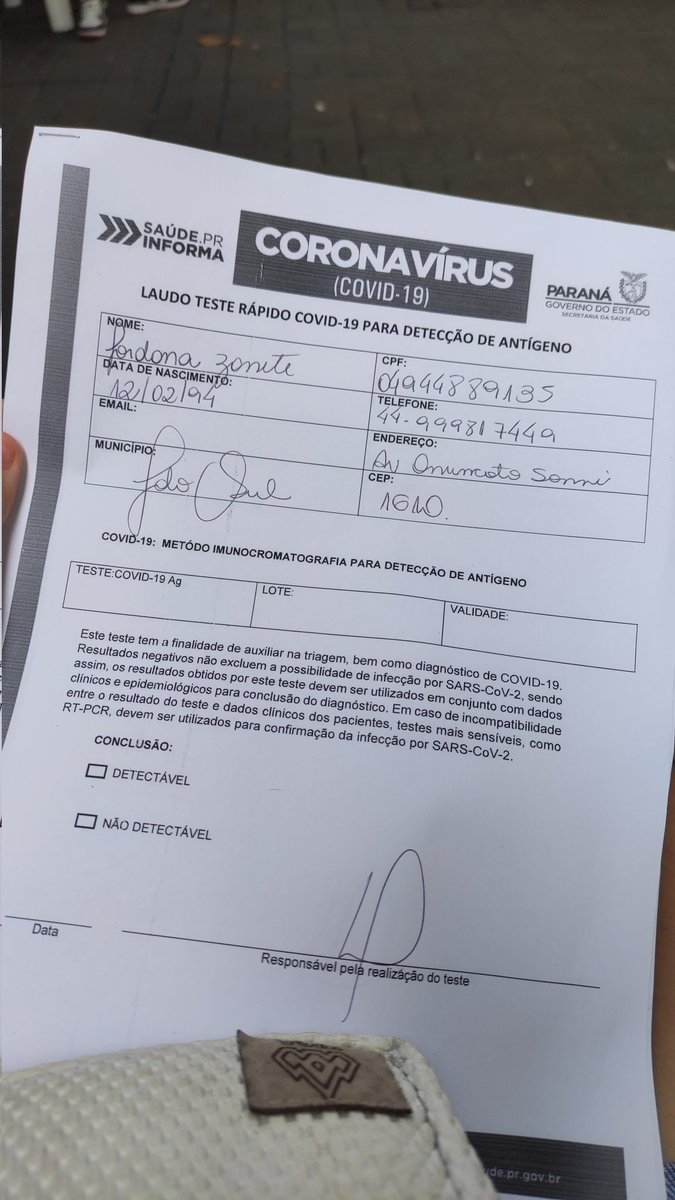 SAÚDE.PR
INFORMA
CORONAVÍRUS
(COVID-19)
PARANÁ
GOVERNO DO ESTADO
SECRETARIA DA SAÚDE
LAUDO TESTE RÁPIDO COVID-19 PARA DETECÇÃO DE ANTÍGENO
NOME:
CPF:
04944889135
DATA DE NASCIMENTO:
12/02/94
TELEFONE:
44-999817449
EMAIL:
ENDEREÇO:
Av
MUNICÍPIO:
Sul
CEP:
COVID-19: METÓDO IMUNOCROMATOGRAFIA PARA DETECÇÃO DE ANTÍGENO
TESTE:COVID-19 Ag
LOTE:
VALIDADE:
Este teste tem a finalidade de auxiliar na triagem, bem como diagnóstico de COVID-19.
Resultados negativos não excluem a possibilidade de infecção por SARS-CoV-2, sendo
assim, os resultados obtidos por este teste devem ser utilizados em conjunto com dados
clínicos e epidemiológicos para conclusão do diagnóstico. Em caso de incompatibilidade
entre o resultado do teste e dados clínicos dos pacientes, testes mais sensíveis, como
RT-PCR, devem ser utilizados para confirmação da infecção por SARS-CoV-2.
CONCLUSÃO:
DETECTÁVEL
NÃO DETECTÁVEL
Data
Responsável pela realização do teste
ude.pr.gov.br